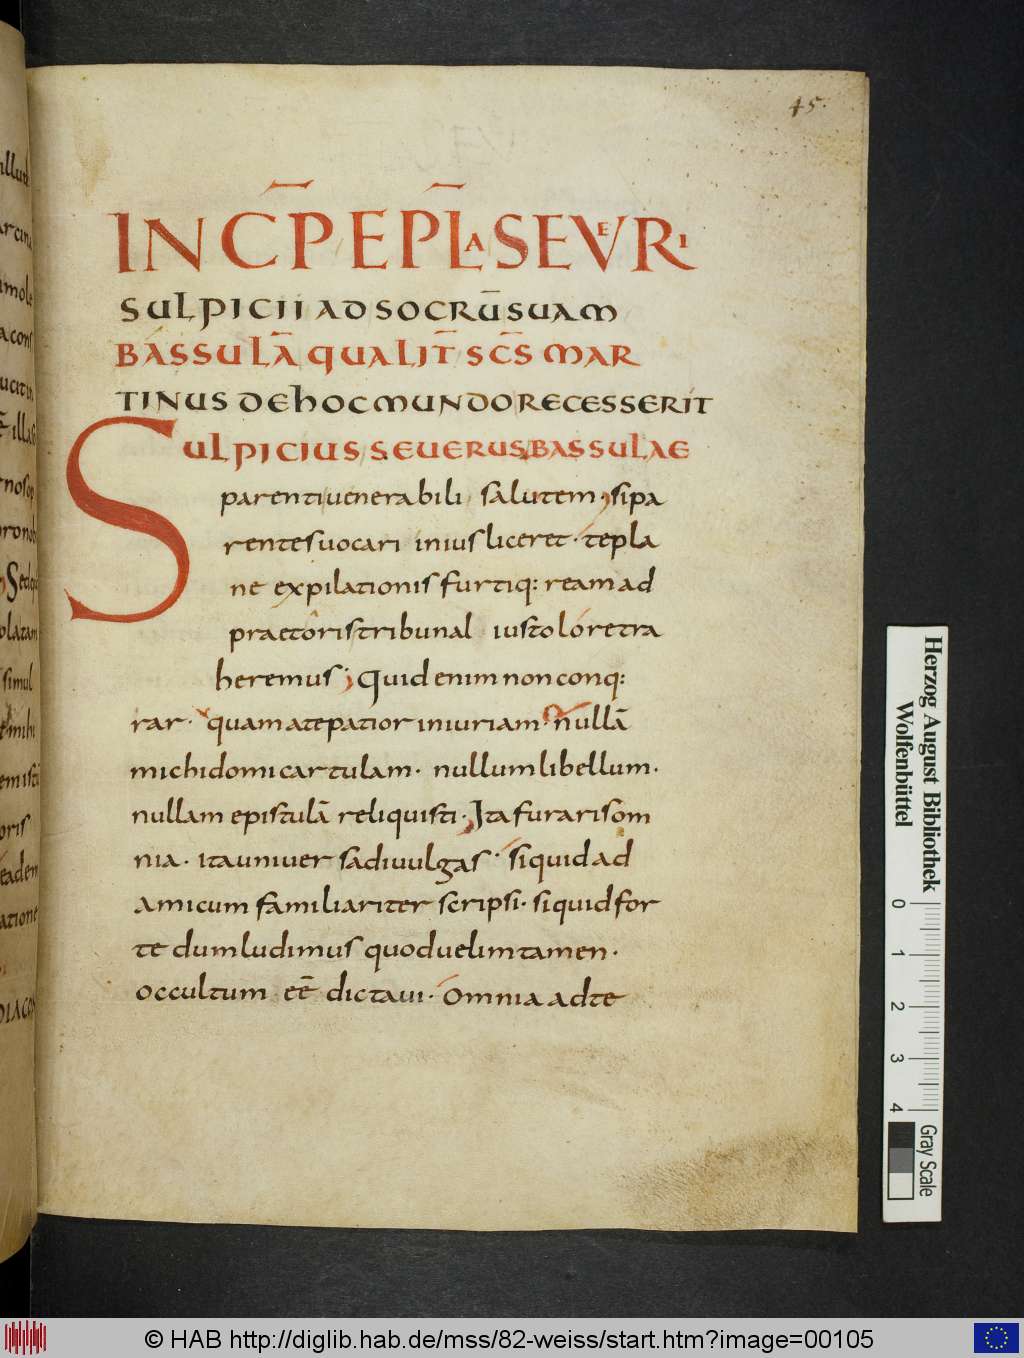 45.
INC̅P EPL̅A SEVERI
SULPICII AD SOCRŪ SUAM
BASSULĀ QUALIT̅ SC̅S MAR
TINUS DE HOC MUNDO RECESSERIT
SULPICIUS SEUERUS BASSULAE
parenti uenerabili salutem; si pa
rentes uocari in ius liceret · te pla
ne expilationis furtiq: ream ad
praetoris tribunal iusto lo re tra
heremus; Quid enim non conq:
rar · quam a te patior iniuriam · nullā
michi domi cartulam · nullum libellum ·
nullam epistulā reliquisti · Ita furaris om
nia · ita uniuersa diuulgas · si quid ad
amicum familiariter scripsi · si quid for
te dum ludimus quod uelim tamen ·
occultum eē dictaui · omnia ad te
illum
amole
acons
ucitur
nosop
simul
oris
eadem
atione
Herzog August Bibliothek
Wolfenbüttel
0 1 2 3 4
Gray Scale
© HAB http://diglib.hab.de/mss/82-weiss/start.htm?image=00105